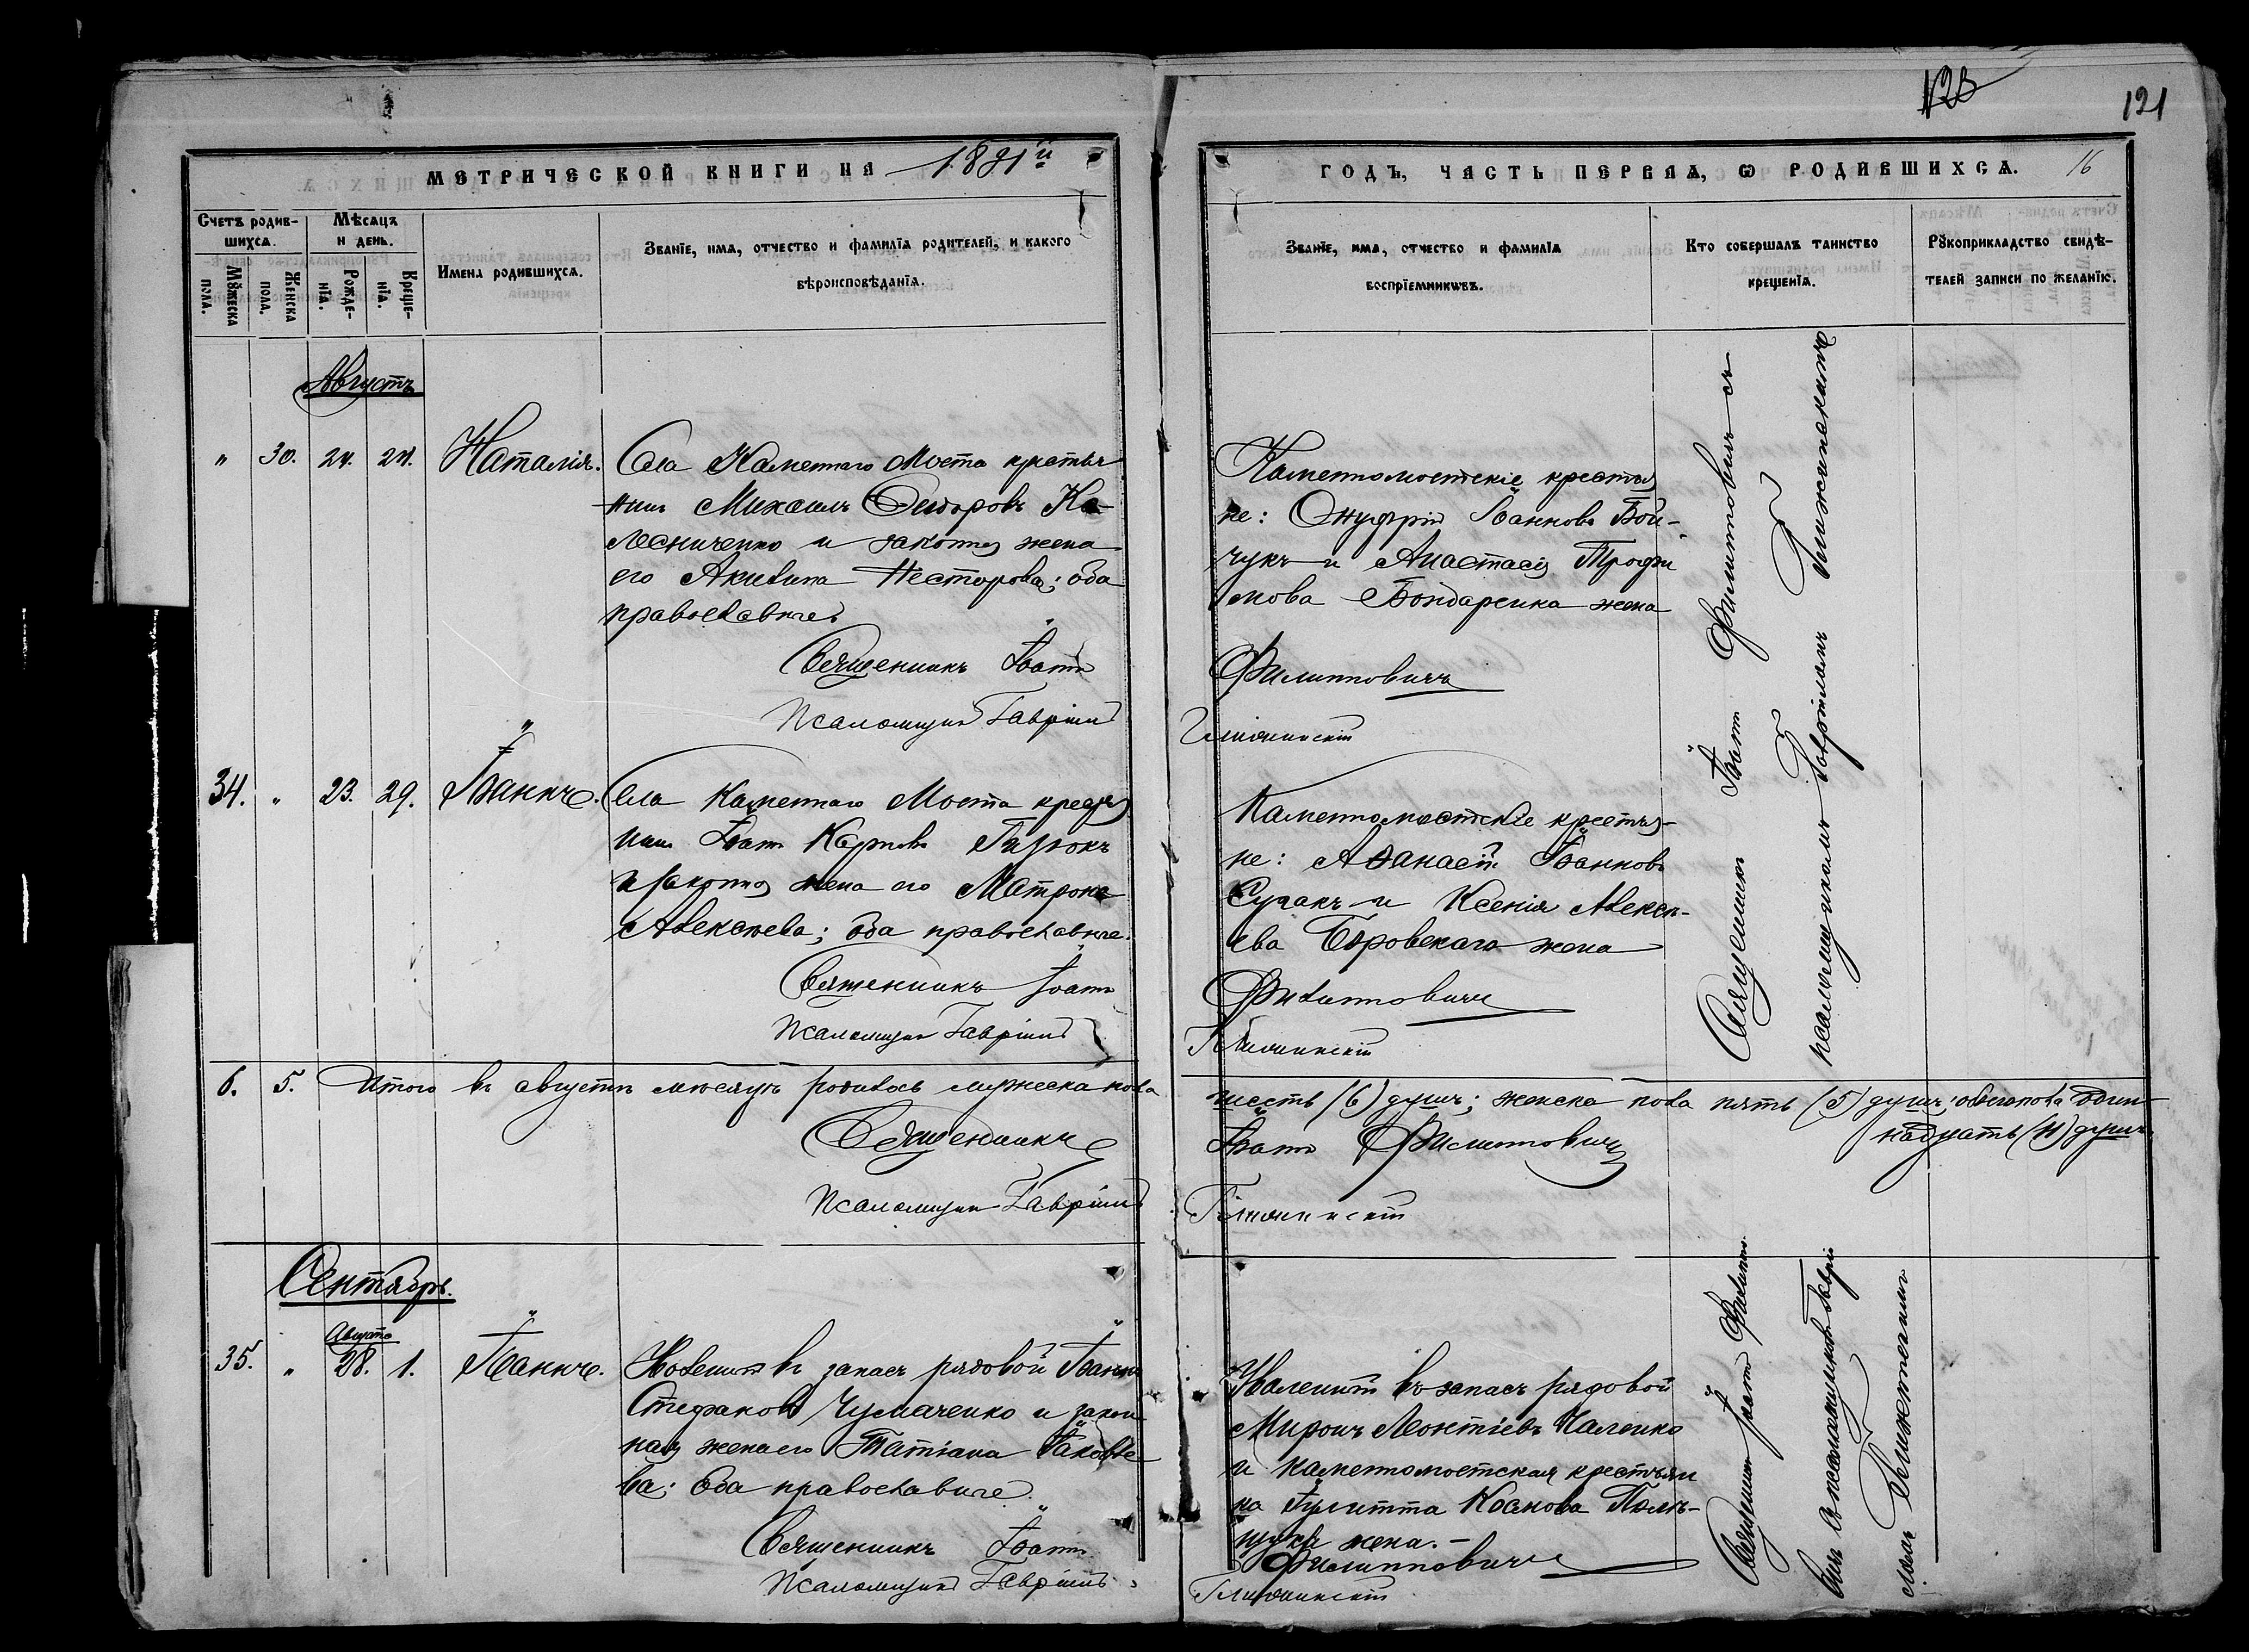 123
121
МЕТРИЧЕСКОЙ КНИГИ НА 1891й
ГОДЪ, ЧАСТЬ ПЕРВАЯ, Ѡ РОДИВШИХСѦ. 16
Счетъ родив-
шихсѧ.
Мꙋжеска
пола.
Женска
пола.
Мѣсѧцъ
и день.
Рожде-
нїѧ.
Креще-
нїѧ.
Имена родившихсѧ.
Званїе, имѧ, отчество и фамилїѧ родителей, и какого
вѣроисповѣданїѧ.
Званїе, имѧ, отчество и фамилїѧ
воспрїемникѡвъ.
Кто совершалъ таинство
крещенїѧ.
Рꙋкоприкладство свидѣ-
телей записи по желанїю.
Августъ
" 30. 24. 24. Наталія.
Села Каменнаго Моста крестья
нинъ Михаилъ Ѳеодоровъ Ко-
лесниченко и законная жена
его Акилина Несторова; оба
православные
Священникъ Іоаннъ
Псаломщикъ Гавріилъ
Каменномостскіе крестья
не: Онуфрій Іоанновъ Бой-
чукъ и Анастасія Трофи
мова Бондаренка жена
Филипповичъ
34. " 23. 29. Іоаннъ.
Села Каменнаго Моста крестья
нинъ Іоаннъ Карповъ
и законная жена его Матрона
Алексѣева; оба православные.
Священникъ Іоаннъ
Псаломщикъ Гавріилъ
Каменномостскіе крестья-
не: Аѳанасій Іоанновъ
и Ксенія Алексѣ-
ева Боровскаго жена
Филипповичъ
Священникъ Іоаннъ Филипповичъ съ
псаломщикомъ Гавріиломъ
6. 5. Итого въ августѣ мѣсяцѣ родилось мужеска пола
Священникъ
Псаломщикъ Гавріилъ
шесть (6) душъ; женска пола пять (5) душъ; обоего пола один-
надцать (11) душъ.
Іоаннъ Филипповичъ
Сентябрь.
Августа
35. " 28. 1. Іоаннъ.
Уволенный въ запасъ рядовой Іоаннъ
Стефановъ Чумаченко и закон-
ная жена его Татіана Іаковле
ва; оба православные.
Священникъ Іоаннъ
Псаломщикъ Гавріилъ
Уволенный въ запасъ рядовой
Миронъ Леонтіевъ
и каменномостская крестьян
ка Іулитта Полі-
щука жена.-
Филипповичъ
Священникъ Іоаннъ Филиппо-
вичъ съ псаломщикомъ Гаврі